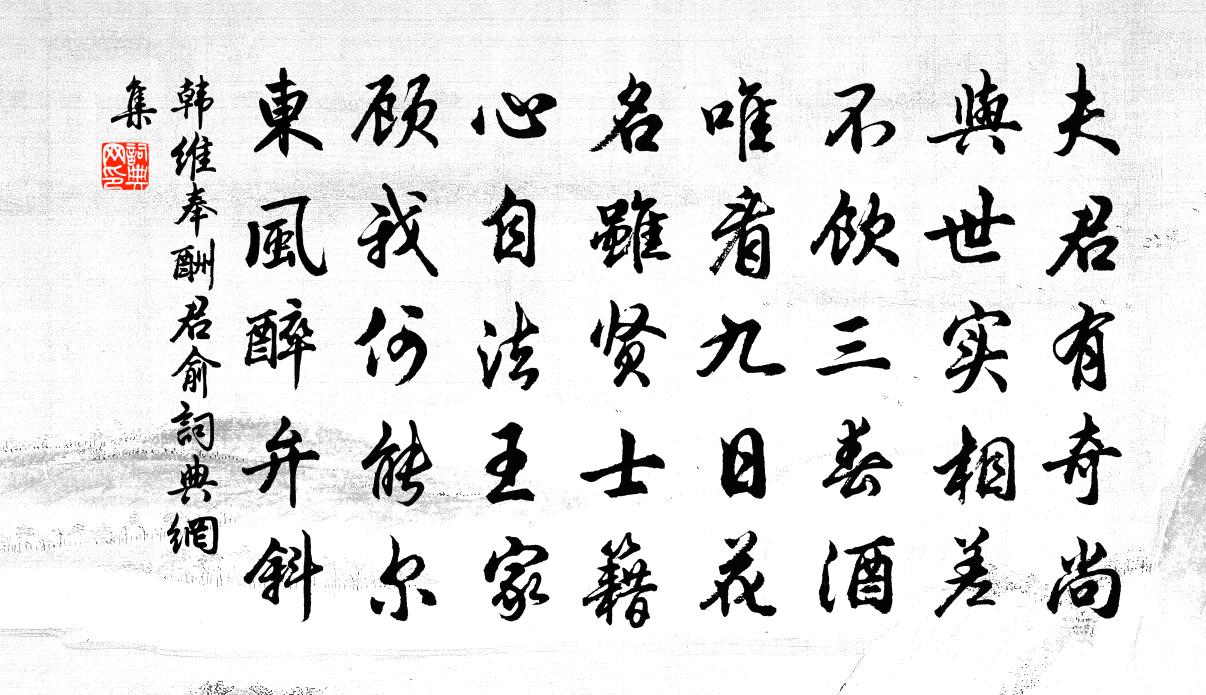 夫君有奇尚
與世实相差
不飲三春酒
唯看九日花
名雖贤士籍
心自法王家
顾我何能尔
東風醉弁斜
韩維奉酬君俞詞典網
集
詞典网印